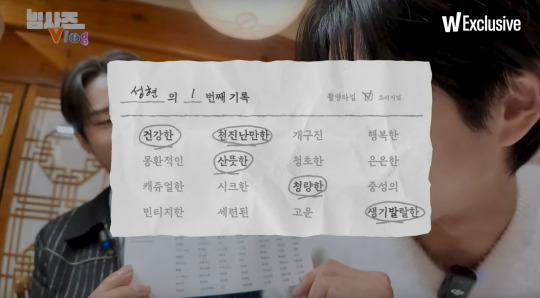 빔사즈
Vlog
W Exclusive
성현 의 1 번째 기록
촬영타임 오리지널
건강한 천진난만한 개구진 행복한
몽환적인 산뜻한 청초한 은은한
캐쥬얼한 시크한 청량한 중성의
빈티지한 세련된 고운 생기발랄한